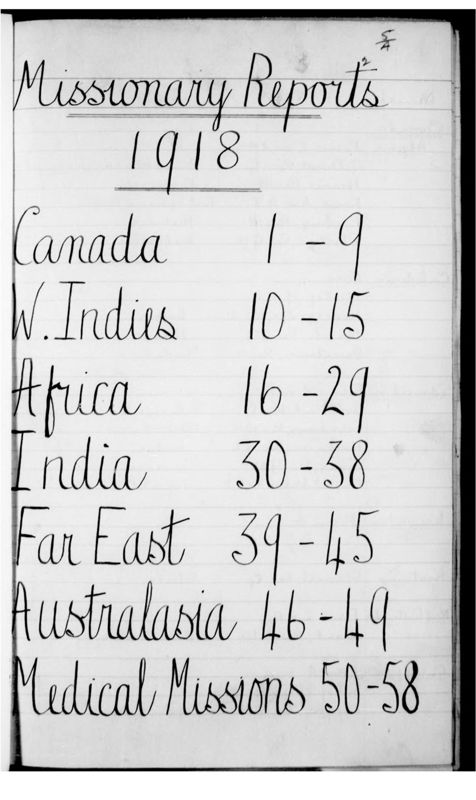 5/4
Missionary Reports
1918
Canada 1 - 9
W. Indies 10 - 15
Africa 16 - 29
India 30 - 38
Far East 39 - 45
Australasia 46 - 49
Medical Missions 50 - 58